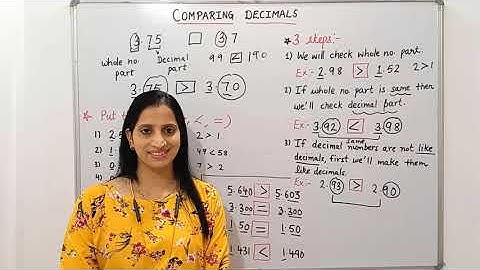 COMPARING DECIMALS
3.75 □ 3.7
whole no. part
Decimal part
99 < 190
3.75 > 3.70
* Put t , <, =)
1) 2 2 > 1
2) 49 < 58
3) 7 > 2
4)
5.640 > 5.603
3.300 = 3.300
1.50 = 1.50
1.431 < 1.490
* 3 steps:-
1) We will check whole no. part.
Ex:- 2.98 > 1.52 2>1
2) If whole no part is same then
we'll check decimal part.
Ex:- 3.92 < 3.98
same
3) If decimal numbers are not like
decimals, first we'll make them
like decimals.
Ex:- 2.93 > 2.90